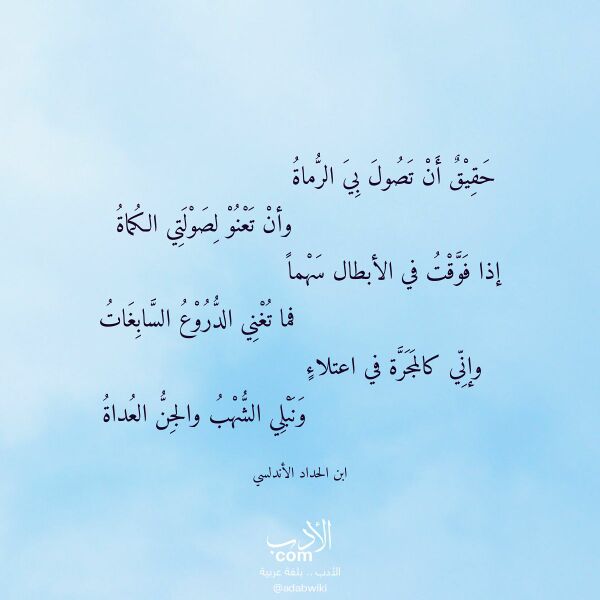 حَقِيْقٌ أَنْ تَصُولَ بِيَ الرُّماةُ
وأنْ تَعْنُوْ لِصَوْلَتِي الكُماةُ
إذا فَوَّقْتُ في الأبطال سَهْماً
فما تُغْنِي الدُّرُوْعُ السَّابِغَاتُ
وإنِّي كالمَجَرَّة في اعتلاءٍ
وَنَبْلِي الشُّهْبُ والجِنُّ العُداةُ
ابن الحداد الأندلسي
الأدب
.com
الأدب .. بلغة عربية
@adabwiki